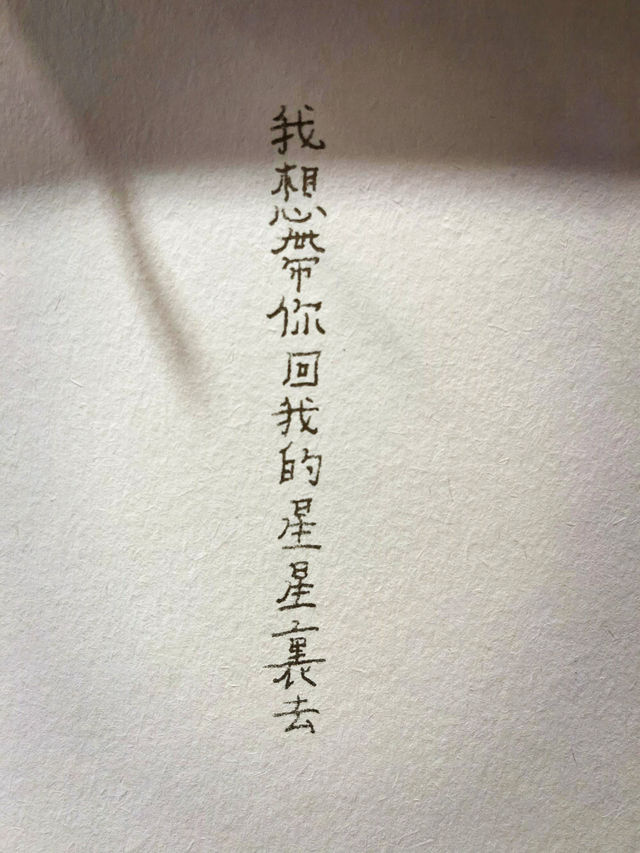 我想带你回我的星星裏去